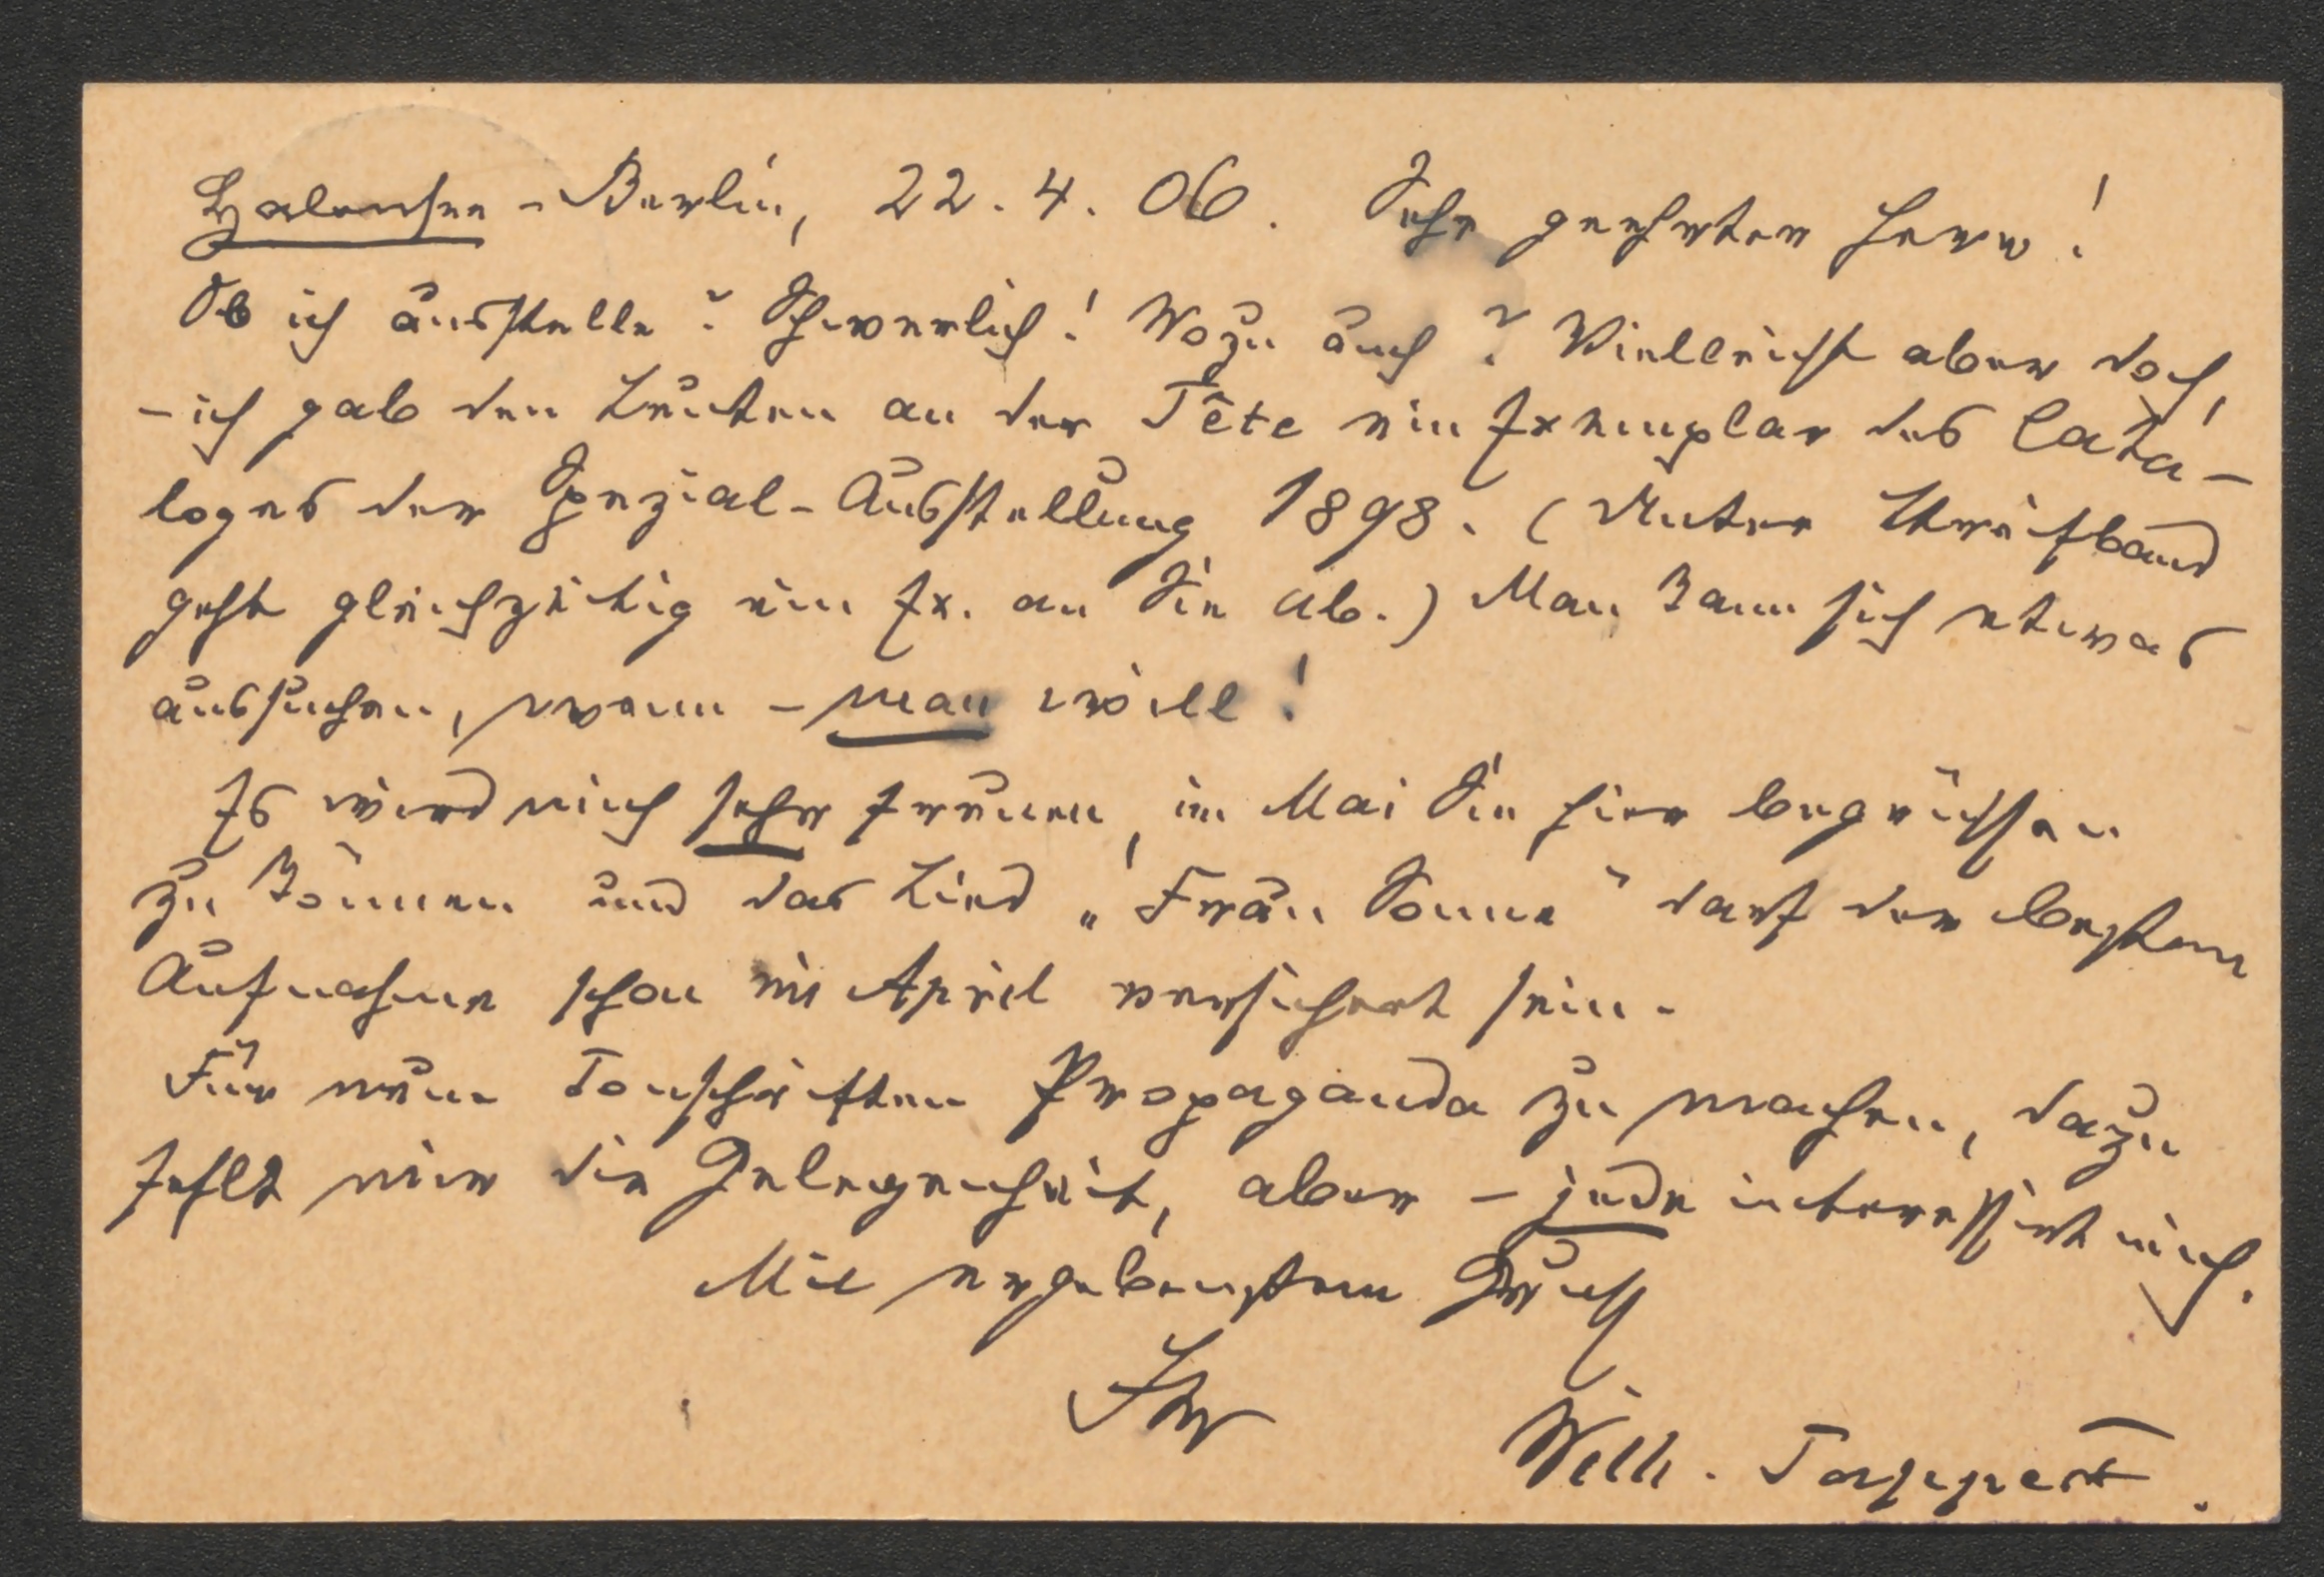 Halensee - Berlin, 22. 4. 06. Sehr geehrter Herr!
Ob ich ausstelle? Schwerlich! Wozu auch? Vielleicht aber doch,
- ich gab den Leuten an der Tête ein Exemplar des Cata-
loges der Spezial-Ausstellung 1898. (Unter Streifband
geht gleichzeitig ein Ex. an Sie ab.) Man kann sich etwas
aussuchen, wenn - man will!
Es wird mich sehr freuen, im Mai Sie hier begrüssen
zu können und das Lied „Frau Sonne" darf der besten
Aufnahme schon im April versichert sein.
Für neue Tonschriften Propaganda zu machen, dazu
fehlt mir die Gelegenheit, aber - jede interessirt mich.
Mit ergebenstem Gruss
Ihr
Wilh. Tappert.